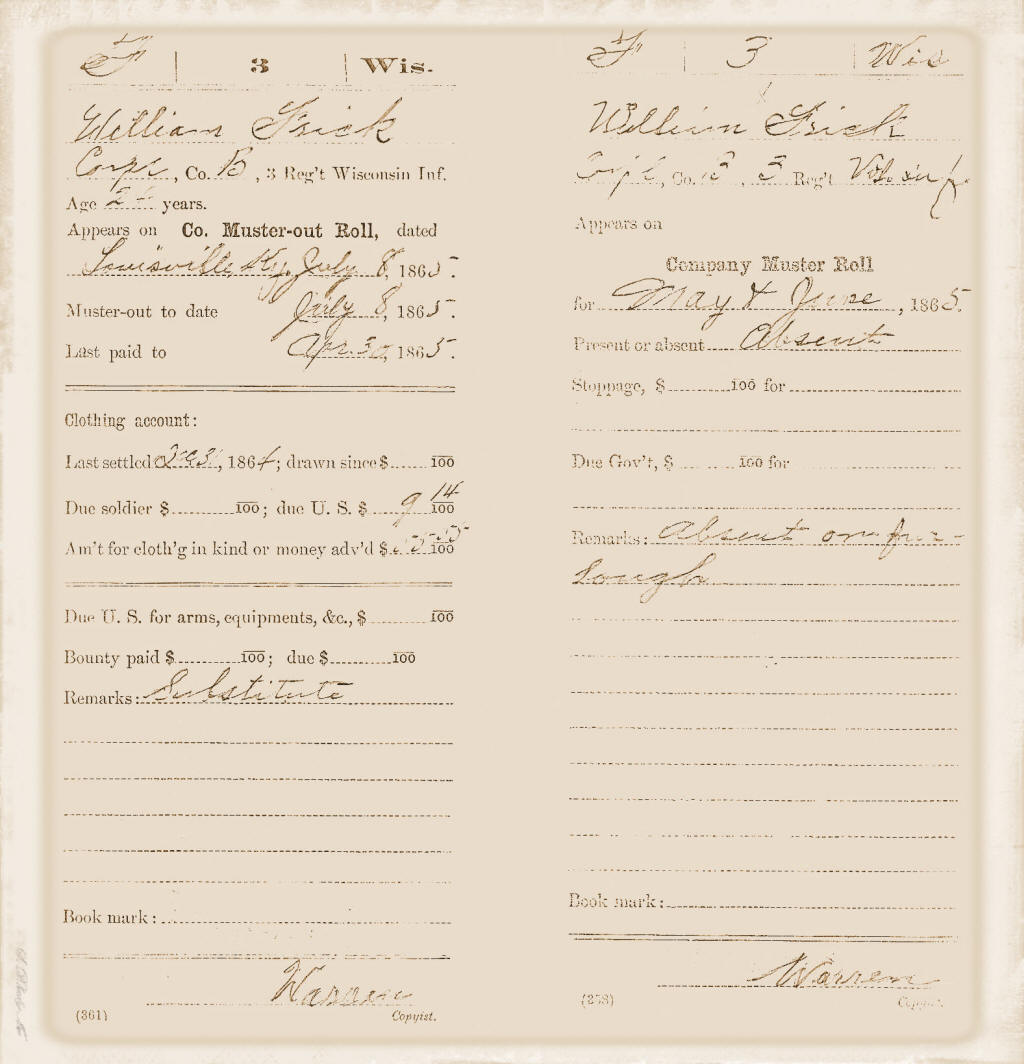 F | 3 | Wis.
William Frick
Corpl, Co. B, 3 Reg't Wisconsin Inf.
Age years.
Appears on Co. Muster-out Roll, dated
Louisville, Ky. July 8, 1865.
Muster-out to date July 8, 1865.
Last paid to Apr. 30, 1865.
Clothing account:
Last settled , 1864; drawn since $ 100
Due soldier $ 100; due U. S. $ 9 14/100
Am't for cloth'g in kind or money adv'd $ 100
Due U. S. for arms, equipments, &c., $ 100
Bounty paid $ 100; due $ 100
Remarks: Substitute
Book mark:
Warren
(361) Copyist.
F | 3 | Wis
William Frick
Corpl, Co. B, 3 Reg't Vol. Inf.
Appears on
Company Muster Roll
for May & June, 1865.
Present or absent Absent
Stoppage, $ 100 for
Due Gov't, $ 100 for
Remarks: Absent on fur-
lough
Book mark:
Warren
(258) Copyist.